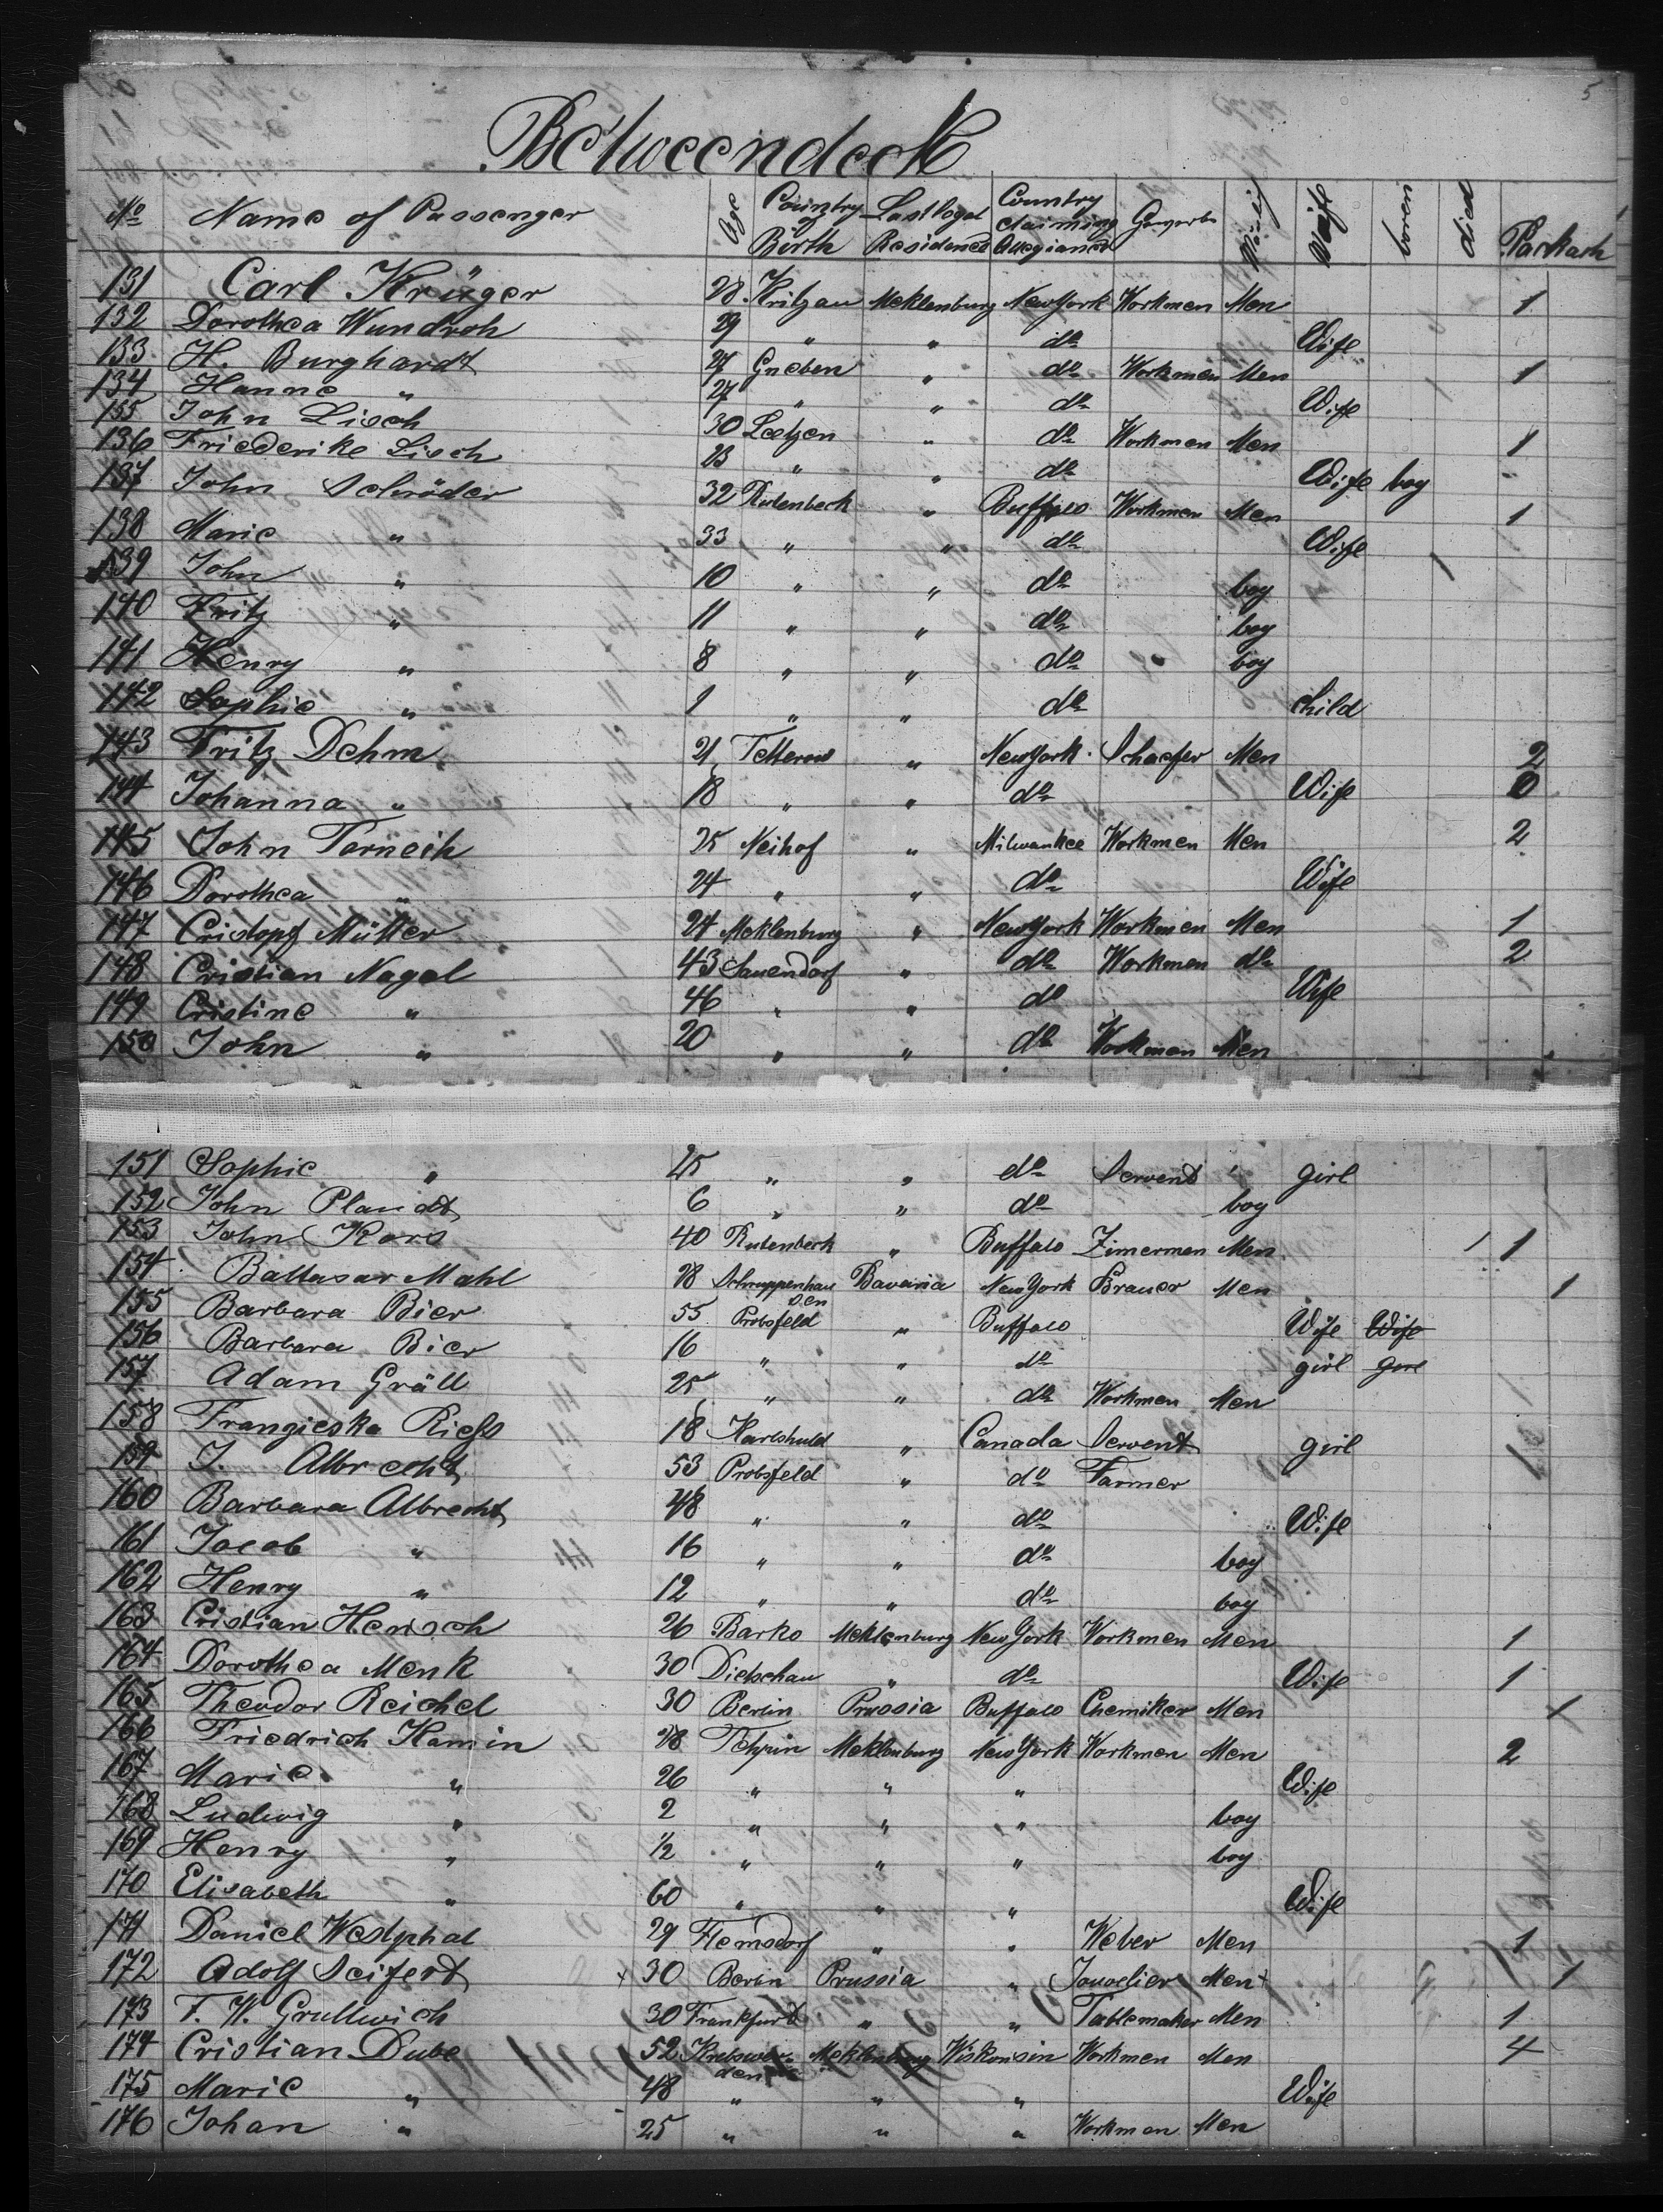 5
Betweendeck
No Name of Passenger Age Country of Birth Last legal Residence Country claiming Allegiance died Packach
131 Carl Krüger 28 Kritzau Meklenburg New York Workmen Men 1
132 Dorothea Wundroh 29 " " do Wife
133 H. Burghardt 27 Gneben " do Workmen Men 1
134 Hanne " 27 " " do Wife
135 John Lisch 30 Leetzen " do Workmen Men 1
136 Friederike Lisch 23 " " do Wife boy
137 John Schröder 32 Rutenbeck " Buffalo Workmen Men 1
138 Marie " 33 " " do Wife
139 John " 10 " " do boy
140 Fritz " 11 " " do boy
141 Henry " 8 " " do boy
142 Sophie " 1 " " do child
143 Fritz Dehm 21 Tetterow " New York Schaefer Men 2
144 Johanna " 18 " " do Wife 0
145 John Tarneih 25 Neihof " Milwaukee Workmen Men 2
146 Dorothea " 24 " " do Wife
147 Cristopf Müller 24 Meklenburg " New York Workmen Men 1
148 Cristian Nagel 43 Sauendorf " do Workmen do 2
149 Cristine " 46 " " do Wife
150 John " 20 " " do Workmen Men
151 Sophie " 25 " " do Servent girl
152 John Plaudt 6 " " do boy
153 John Kars 40 Rutenbeck " Buffalo Zimermen Men 1
154 Baltasar Mahl 28 Schnuppenhausen Bavaria New York Brauer Men 1
155 Barbara Bier 55 Probsfeld " Buffalo Wife Wife
156 Barbara Bier 16 " " do girl girl
157 Adam Gräll 25 " " do Workmen Men
158 Franzieska Riefs 18 Karlshuld " Canada Servent girl
159 J. Albrecht 53 Probsfeld " do Farmer
160 Barbara Albrecht 48 " " do Wife
161 Jacob " 16 " " do boy
162 Henry " 12 " " do boy
163 Cristian Hensch 26 Barko Meklenburg New York Workmen Men 1
164 Dorothea Menk 30 Dietschau " do Wife 1
165 Theodor Reichel 30 Berlin Prussia Buffalo Chemiker Men 1
166 Friedrich Hamin 28 Meklenburg New York Workmen Men 2
167 Marie " 26 " " " Wife
168 Ludwig " 2 " " " boy
169 Henry " 1/2 " " " boy
170 Elisabeth " 60 " " " Wife
171 Daniel Westphal 29 Flemsdorf " " Weber Men 1
172 Adolf Seifert 30 Berlin Prussia " Jouvelier Men 1
173 F. W. Grullwich 30 Frankfurt " " Tablemaker Men 1
174 Cristian Dube 52 Meklenburg Wiskonsin Workmen Men 4
175 Marie " 48 " " " Wife
176 Johan " 25 " " " Workmen Men